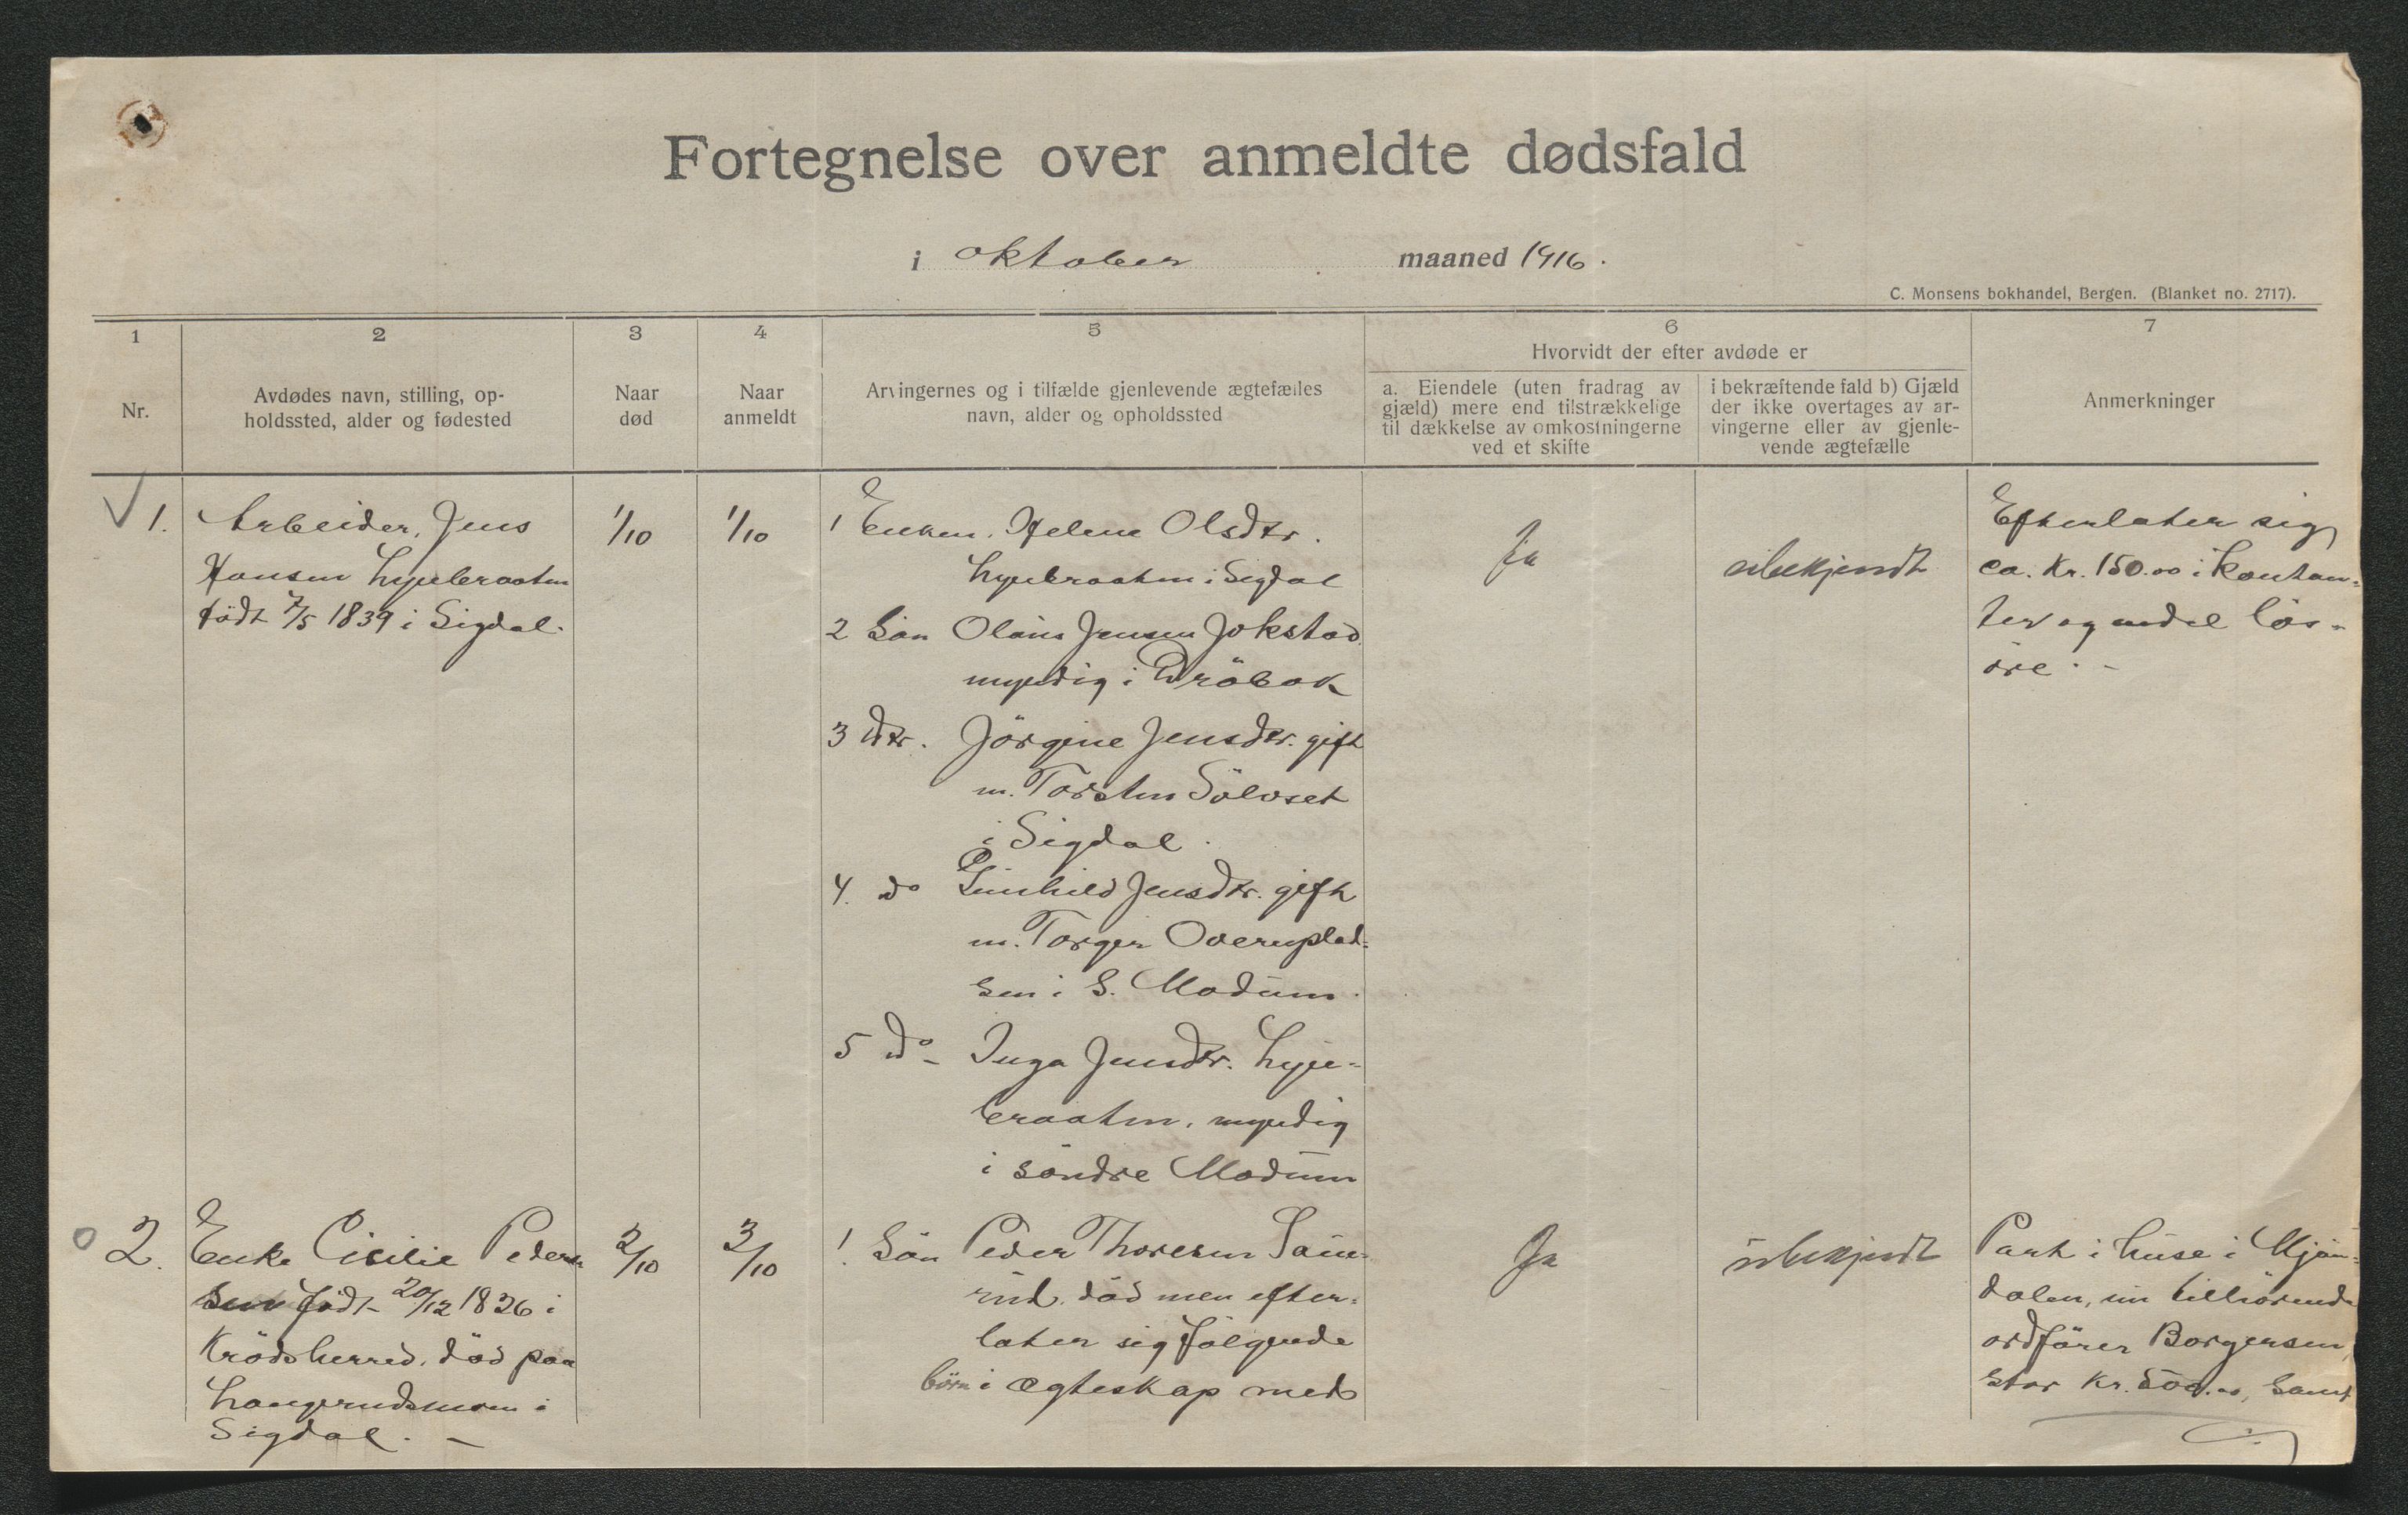 Fortegnelse over anmeldte dødsfald
i oktober maaned 1916.
C. Monsens bokhandel, Bergen. (Blanket no. 2717).
1
Nr.
2
Avdødes navn, stilling, op-
holdssted, alder og fødested
3
Naar
død
4
Naar
anmeldt
5
Arvingernes og i tilfælde gjenlevende ægtefælles
navn, alder og opholdssted
6
Hvorvidt der efter avdøde er
a. Eiendele (uten fradrag av
gjæld) mere end tilstrækkelige
til dækkelse av omkostningerne
ved et skifte
i bekræftende fald b) Gjæld
der ikke overtages av ar-
vingerne eller av gjenle-
vende ægtefælle
7
Anmerkninger
1.
Arbeider, Jens
Hansen
födt 7/5 1839 i Sigdal.
1/10
1/10
1 Enken, Helene Olsdtr.
i Sigdal
2 Sön Olaus Jensen Jokstad
myndig i Dröbak
3 Dtr. Jörgine Jensdtr. gift
m. Torsten Sölvset
i Sigdal.
4. do Gunhild Jensdtr. gift
m. Torger Overnplad-
sen i S. Modum.
5 do Inga Jensdtr. Lyse-
braaten, myndig
i söndre Modum
Ja
ubekjendt
Efterlater sig
ca. Kr. 150.00 i Kontan-
ter og endel lös-
öre. -
2.
Enke Cicilie Peder
sen födt 20/12 1826 i
Krödsherred, död paa
i
Sigdal. -
2/10
3/10
1. Sön Peder Thoresen
död men efter-
later sig fölgende
börn i ægteskap med
Ja
ubekjendt
Part i huse i Mjön-
dalen, nu tilhörende
ordförer Borgersen,
stor Kr. 500.00, samt